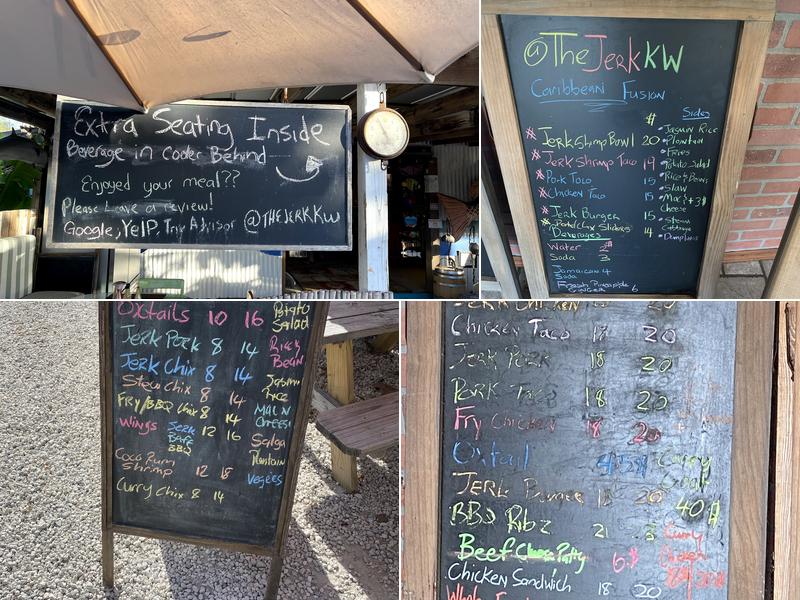 Extra Seating Inside
Beverage in Cooler Behind
Enjoyed your meal??
Please Leave a review!
Google, Yelp, Trip Advisor @THEJERKKW
@TheJerkKW
Caribbean Fusion
$
Sides
Jerk Shrimp Bowl 20
Jerk Shrimp Taco 19
Pork Taco 15
Chicken Taco 15
Jerk Burger 15
Pork/Chix Sliders 14
Beverages
Water 2
Soda 3
Jamaican 4
Soda
Fresh Pineapple
Ginger 6
Jasmin Rice
Plantain
Fries
Potato Salad
Rice & Beans
Slaw
Mac & +3$
Cheese
Steam
Cabbage
Dumplins
Oxtails 10 16
Jerk Pork 8 14
Jerk Chix 8 14
Stew Chix 8 14
Fry/BBQ Chix 8 14
Wings Jerk 12 16
BBQ
Coco Rum
Shrimp 12 18
Curry Chix 8 14
Potato
Salad
Rice
Bean
Jasmin
Rice
Mac N
Cheese
Salad
Plantain
Vegees
Jerk Chicken 20
Chicken Taco 18 20
Jerk Pork 18 20
Pork Taco 18 20
Fry Chicken 18 20
Oxtail
Jerk Burger 18 20
BBQ Ribz 21
Beef Cheese Patty 6$
Chicken Sandwich 18 20
Curry
Goat
40$
Curry